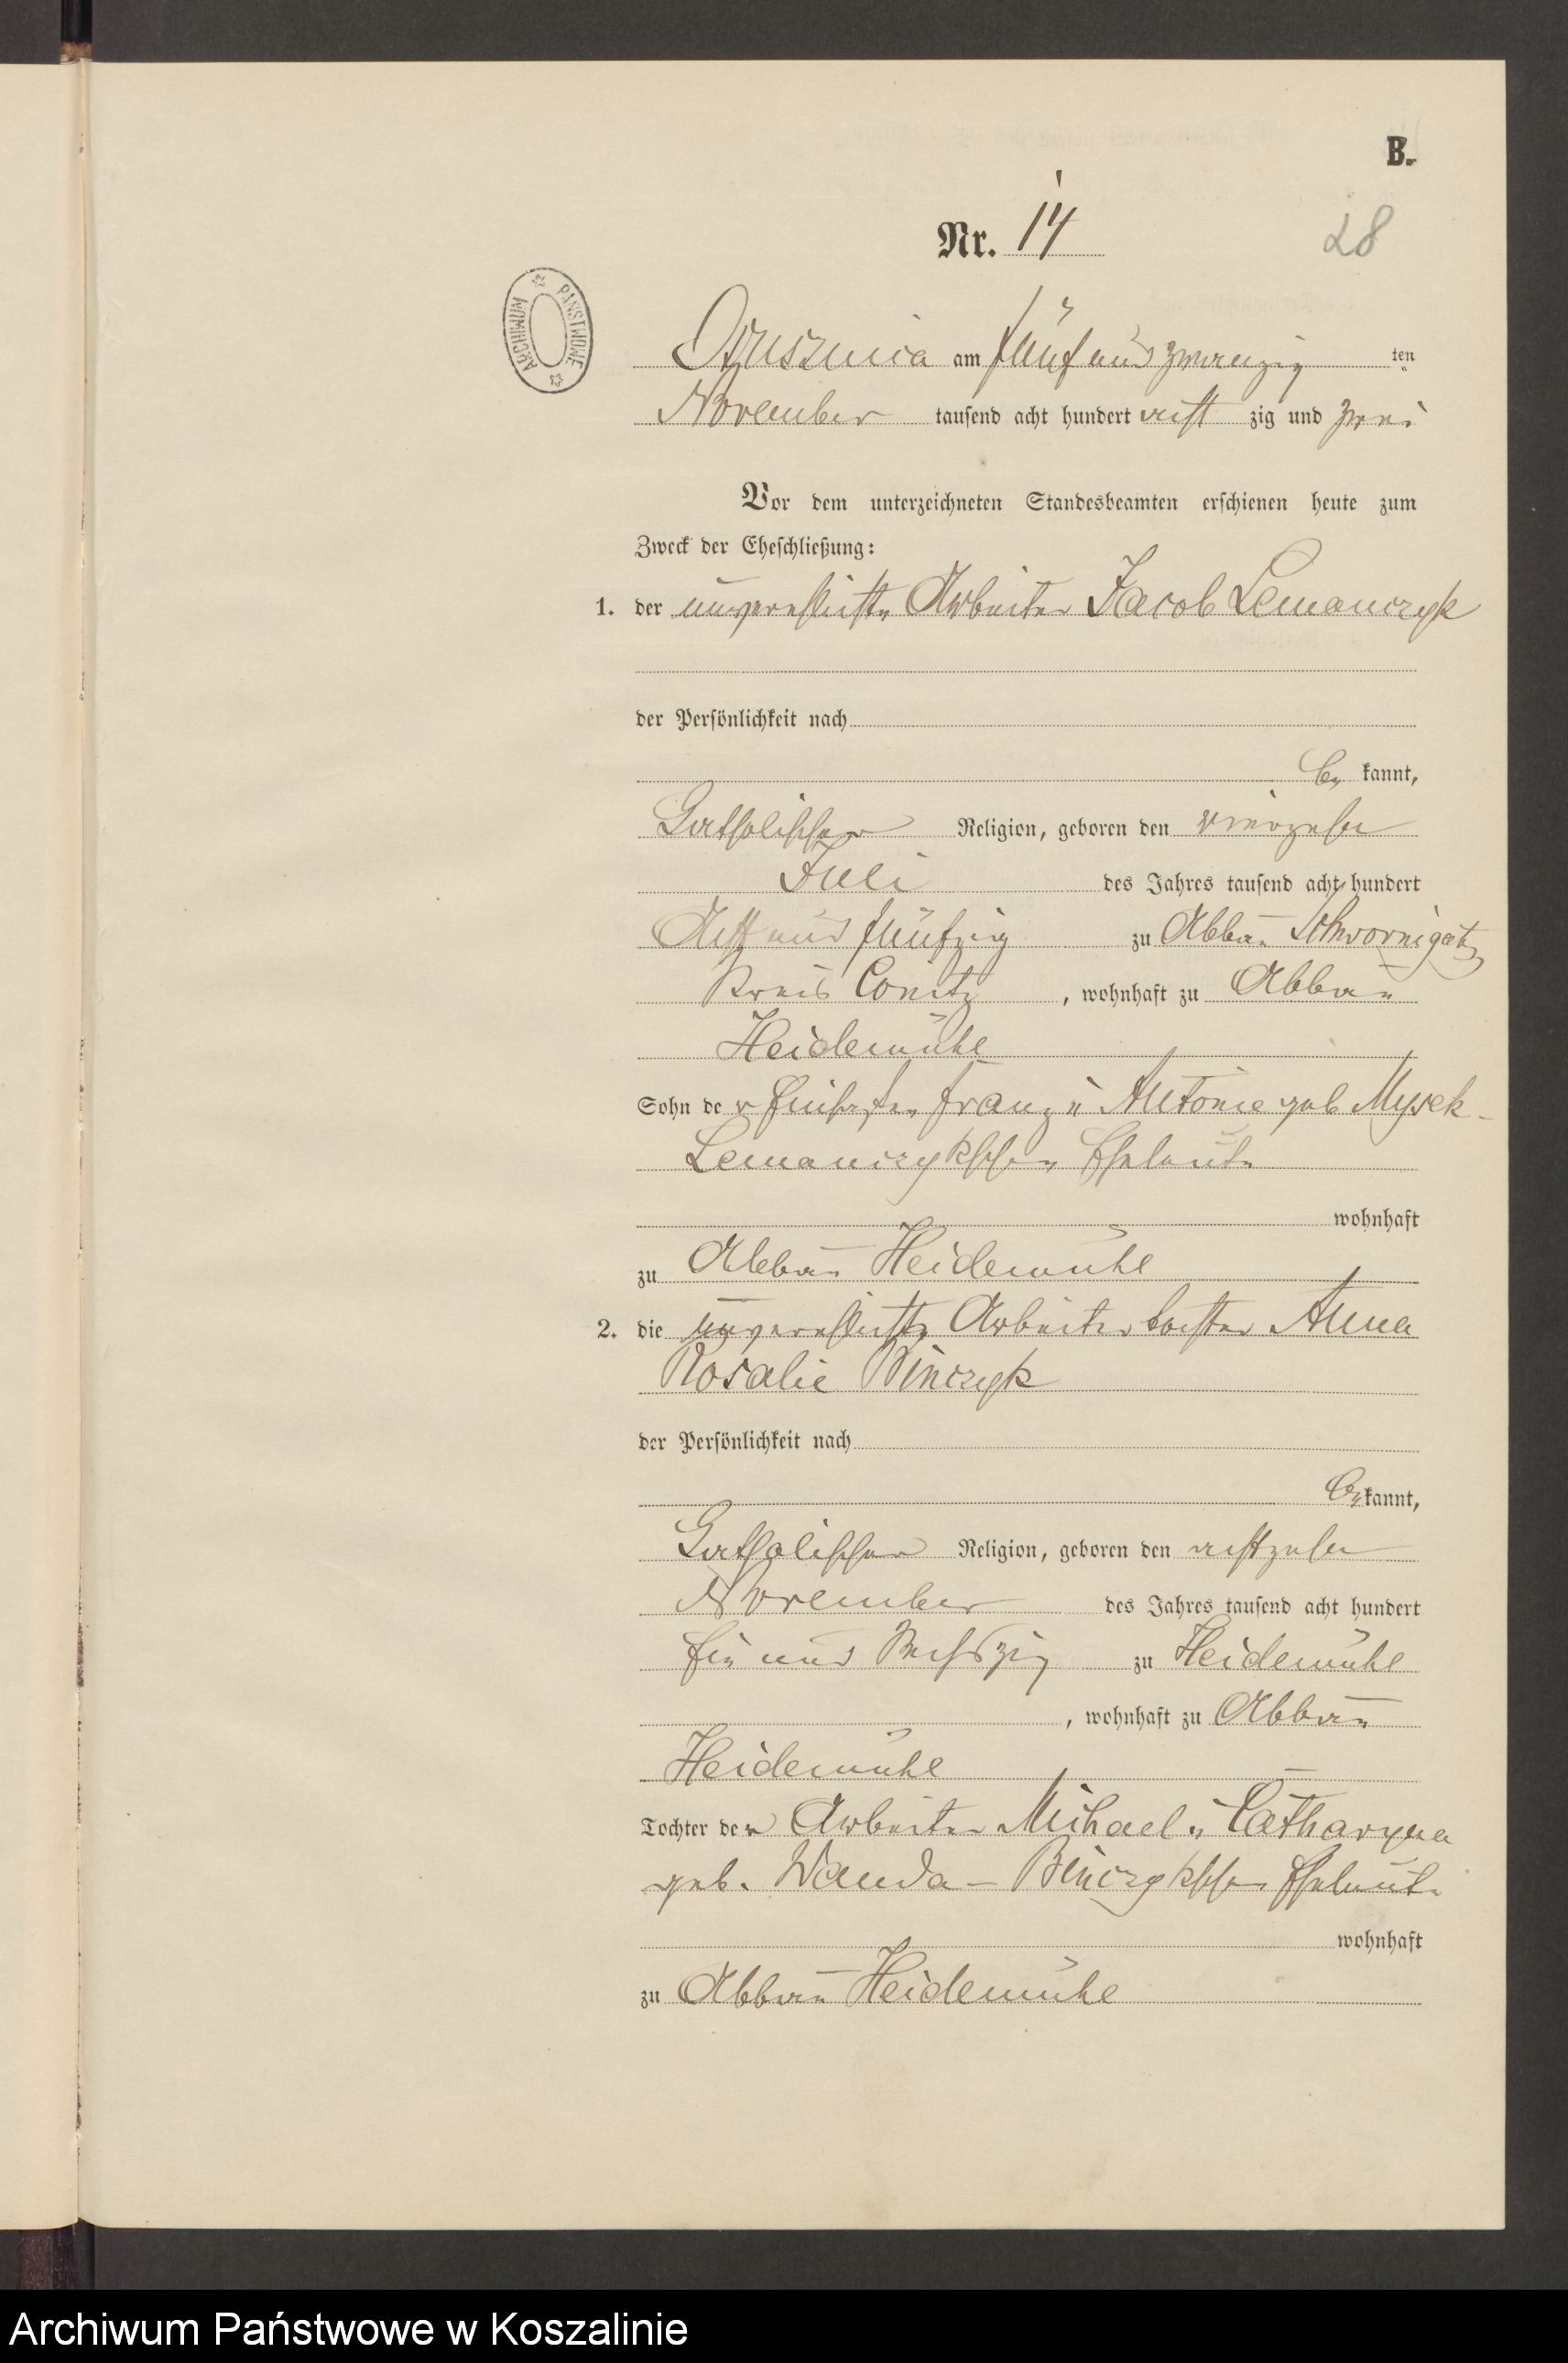 B.
Nr. 14
28
ARCHIWUM PAŃSTWOWE
Ossusznica am fünf und zwanzig ten
November tausend acht hundert acht zig und zwei
Vor dem unterzeichneten Standesbeamten erschienen heute zum
Zweck der Eheschließung:
1. der unverehlichte Arbeiter Jacob Lemanczyk
der Persönlichkeit nach
be kannt,
Catholischer Religion, geboren den vierzehn
Juli des Jahres tausend acht hundert
Acht und fünfzig zu Abbau Schwornigatz
Kreis Conitz, wohnhaft zu Abbau
Heidemühl
Sohn der Franz u Antonie geb Mysek-
Lemanczykschen Eheleute
wohnhaft
zu Abbau Heidemühl
2. die unverehlichte Arbeitertochter Anna
Rosalie Binczyk
der Persönlichkeit nach
be kannt,
Catholischer Religion, geboren den achtzehn
November des Jahres tausend acht hundert
Ein und Sechszig zu Heidemühl
, wohnhaft zu Abbau
Heidemühl
Tochter der Arbeiter Michael u Catharyna
geb. Wanda - Binczykschen Eheleute
wohnhaft
zu Abbau Heidemühl
Archiwum Państwowe w Koszalinie